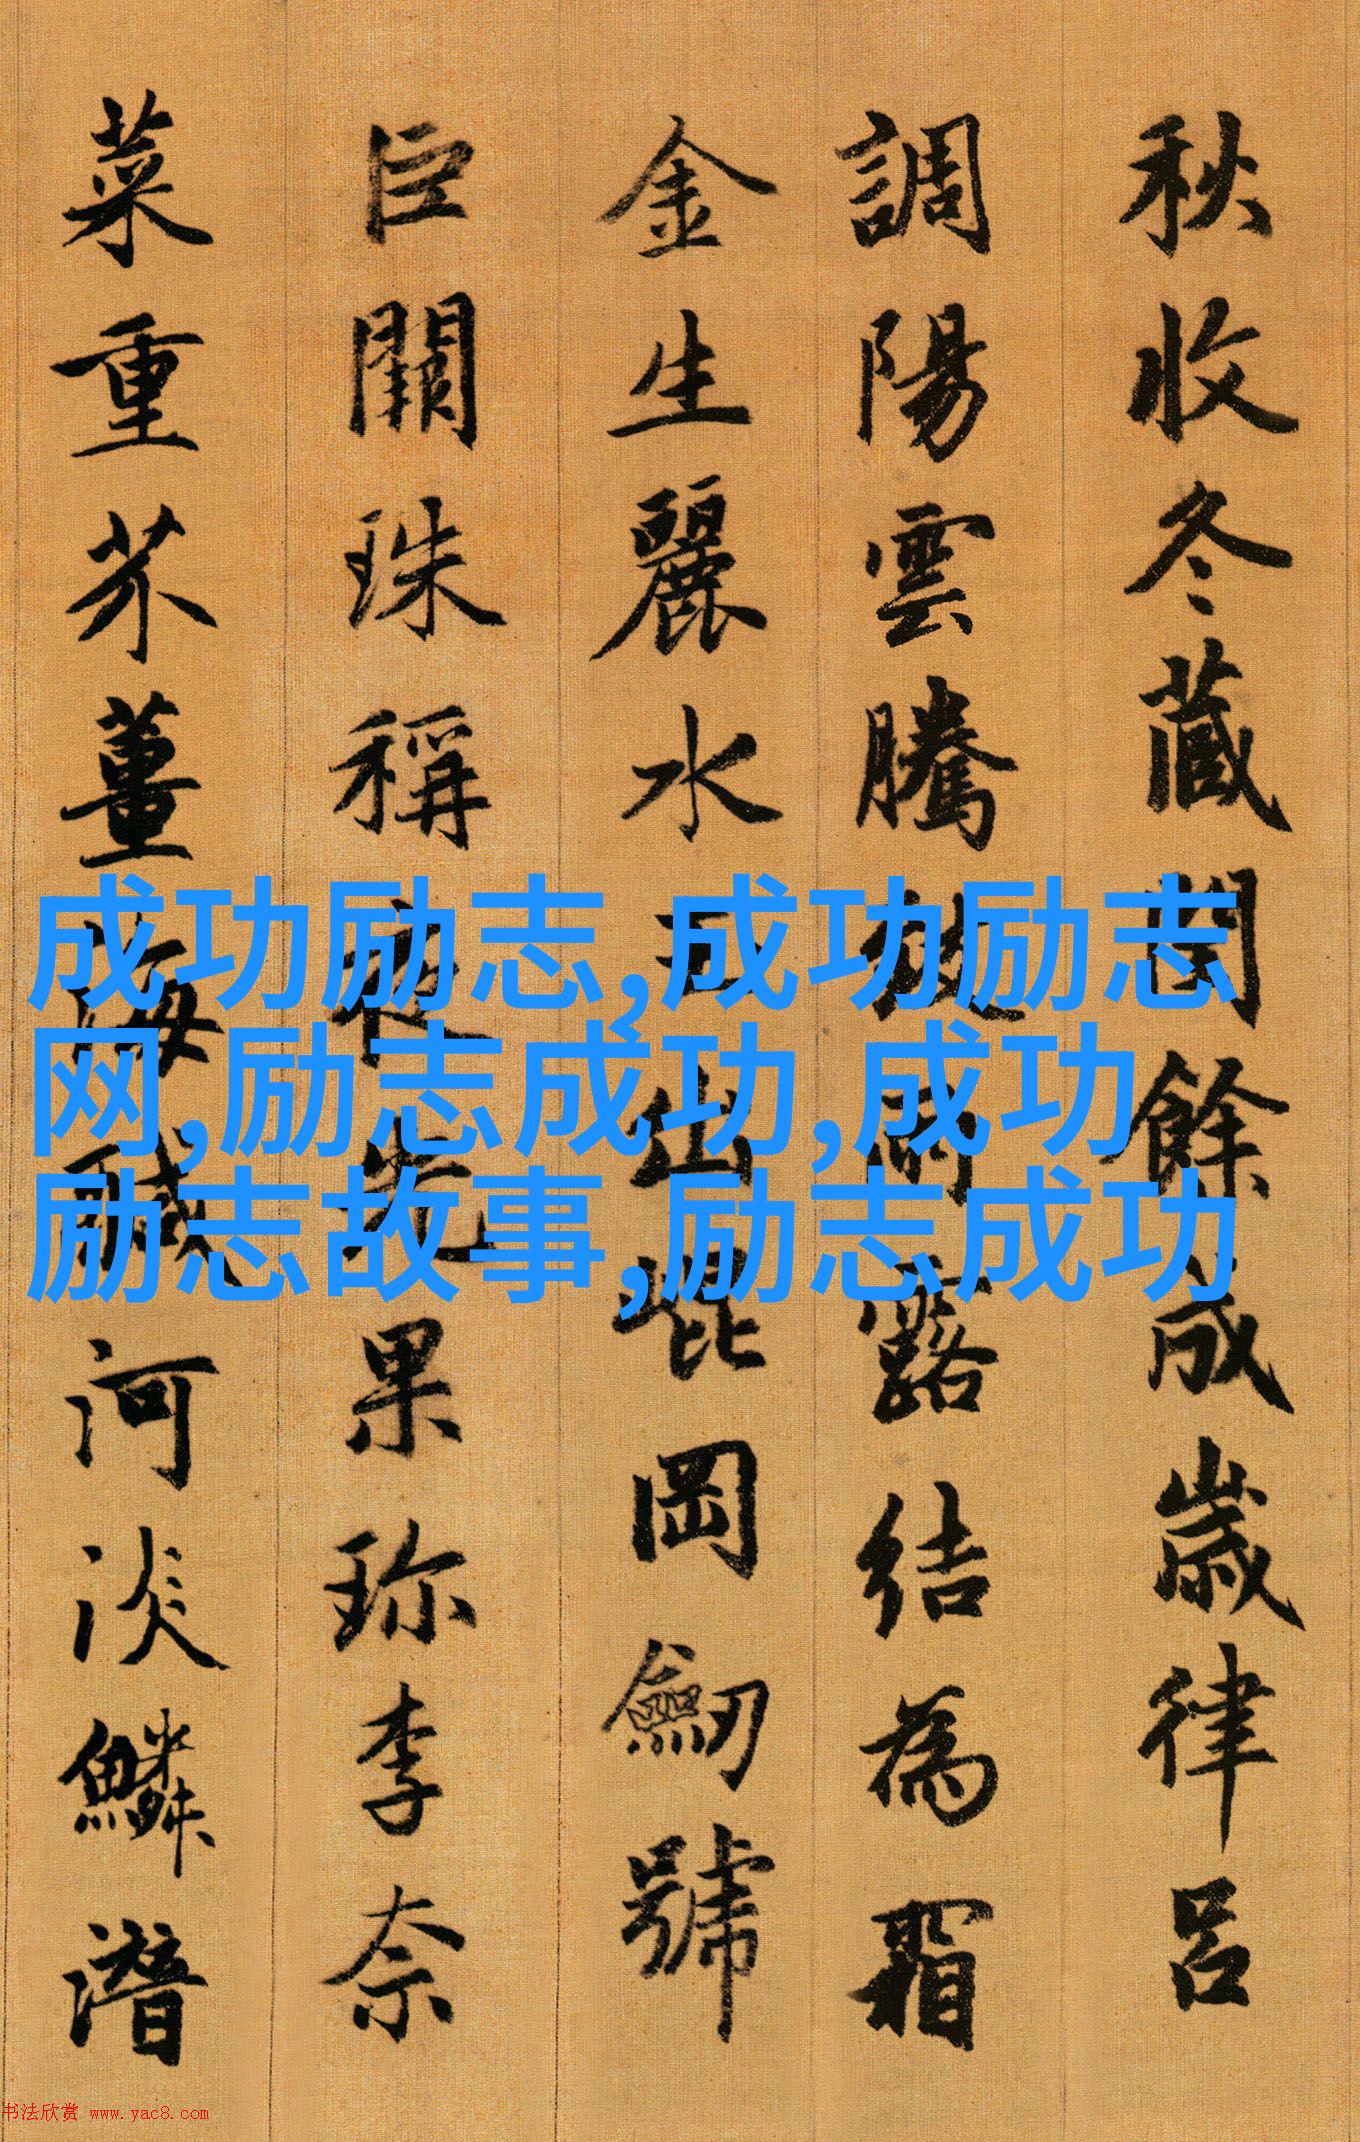 秋收冬蔵閏餘成歲律吕
調陽雲騰致雨露結為霜
金生麗水玉出崐岡劒號
巨闕珠稱夜光果珎李奈
菜重芥薑海鹹河淡鱗潛
成功励志,成功励志
网,励志成功,成功
励志故事,励志成功
书法欣赏 www.yac8.com